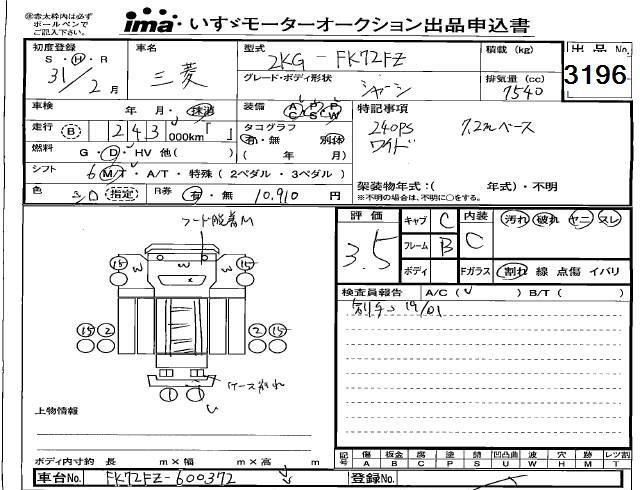 ㊟赤太枠内は必ず
ボールペンで
ご記入下さい。
ima いすゞモーターオークション出品申込書
初度登録
S・H・R
31/2月
車名
三菱
型式
2KG-FK72FZ
グレード・ボディ形状
シャーシ
積載(kg)
排気量(cc)
7540
出品No.
3196
車検 年 月・抹消
装備 AC PS PW
特記事項
240PS
ワイド
7.2mベース
走行 B 243 000km「 」
タコグラフ
有・無 別体
( 年 月)
燃料 G・D・HV 他( )
シフト 6 M/T・A/T・特殊(2ペダル・3ペダル)
色 シロ 指定
R券 有・無 10,910円
架装物年式:( 年式)・不明
※不明の場合は、不明に○をする。
評価
3.5
キャブ C
フレーム B
ボディ
内装 C
汚れ 破れ ヤニ スレ
Fガラス 割れ 線 点傷 イバリ
検査員報告 A/C( ) B/T( )
19/01
フード脱着M
15 W W 15
W
15 2 2 15
ケース割れ
1 1
上物情報
ボディ内寸約 長 m×幅 m×高 m
記号 傷A 板金B 腐C 塗P 錆S 凹凸曲U 波W 穴H 跡M レツ割T
車台No. FK72FZ-600372
登録No.